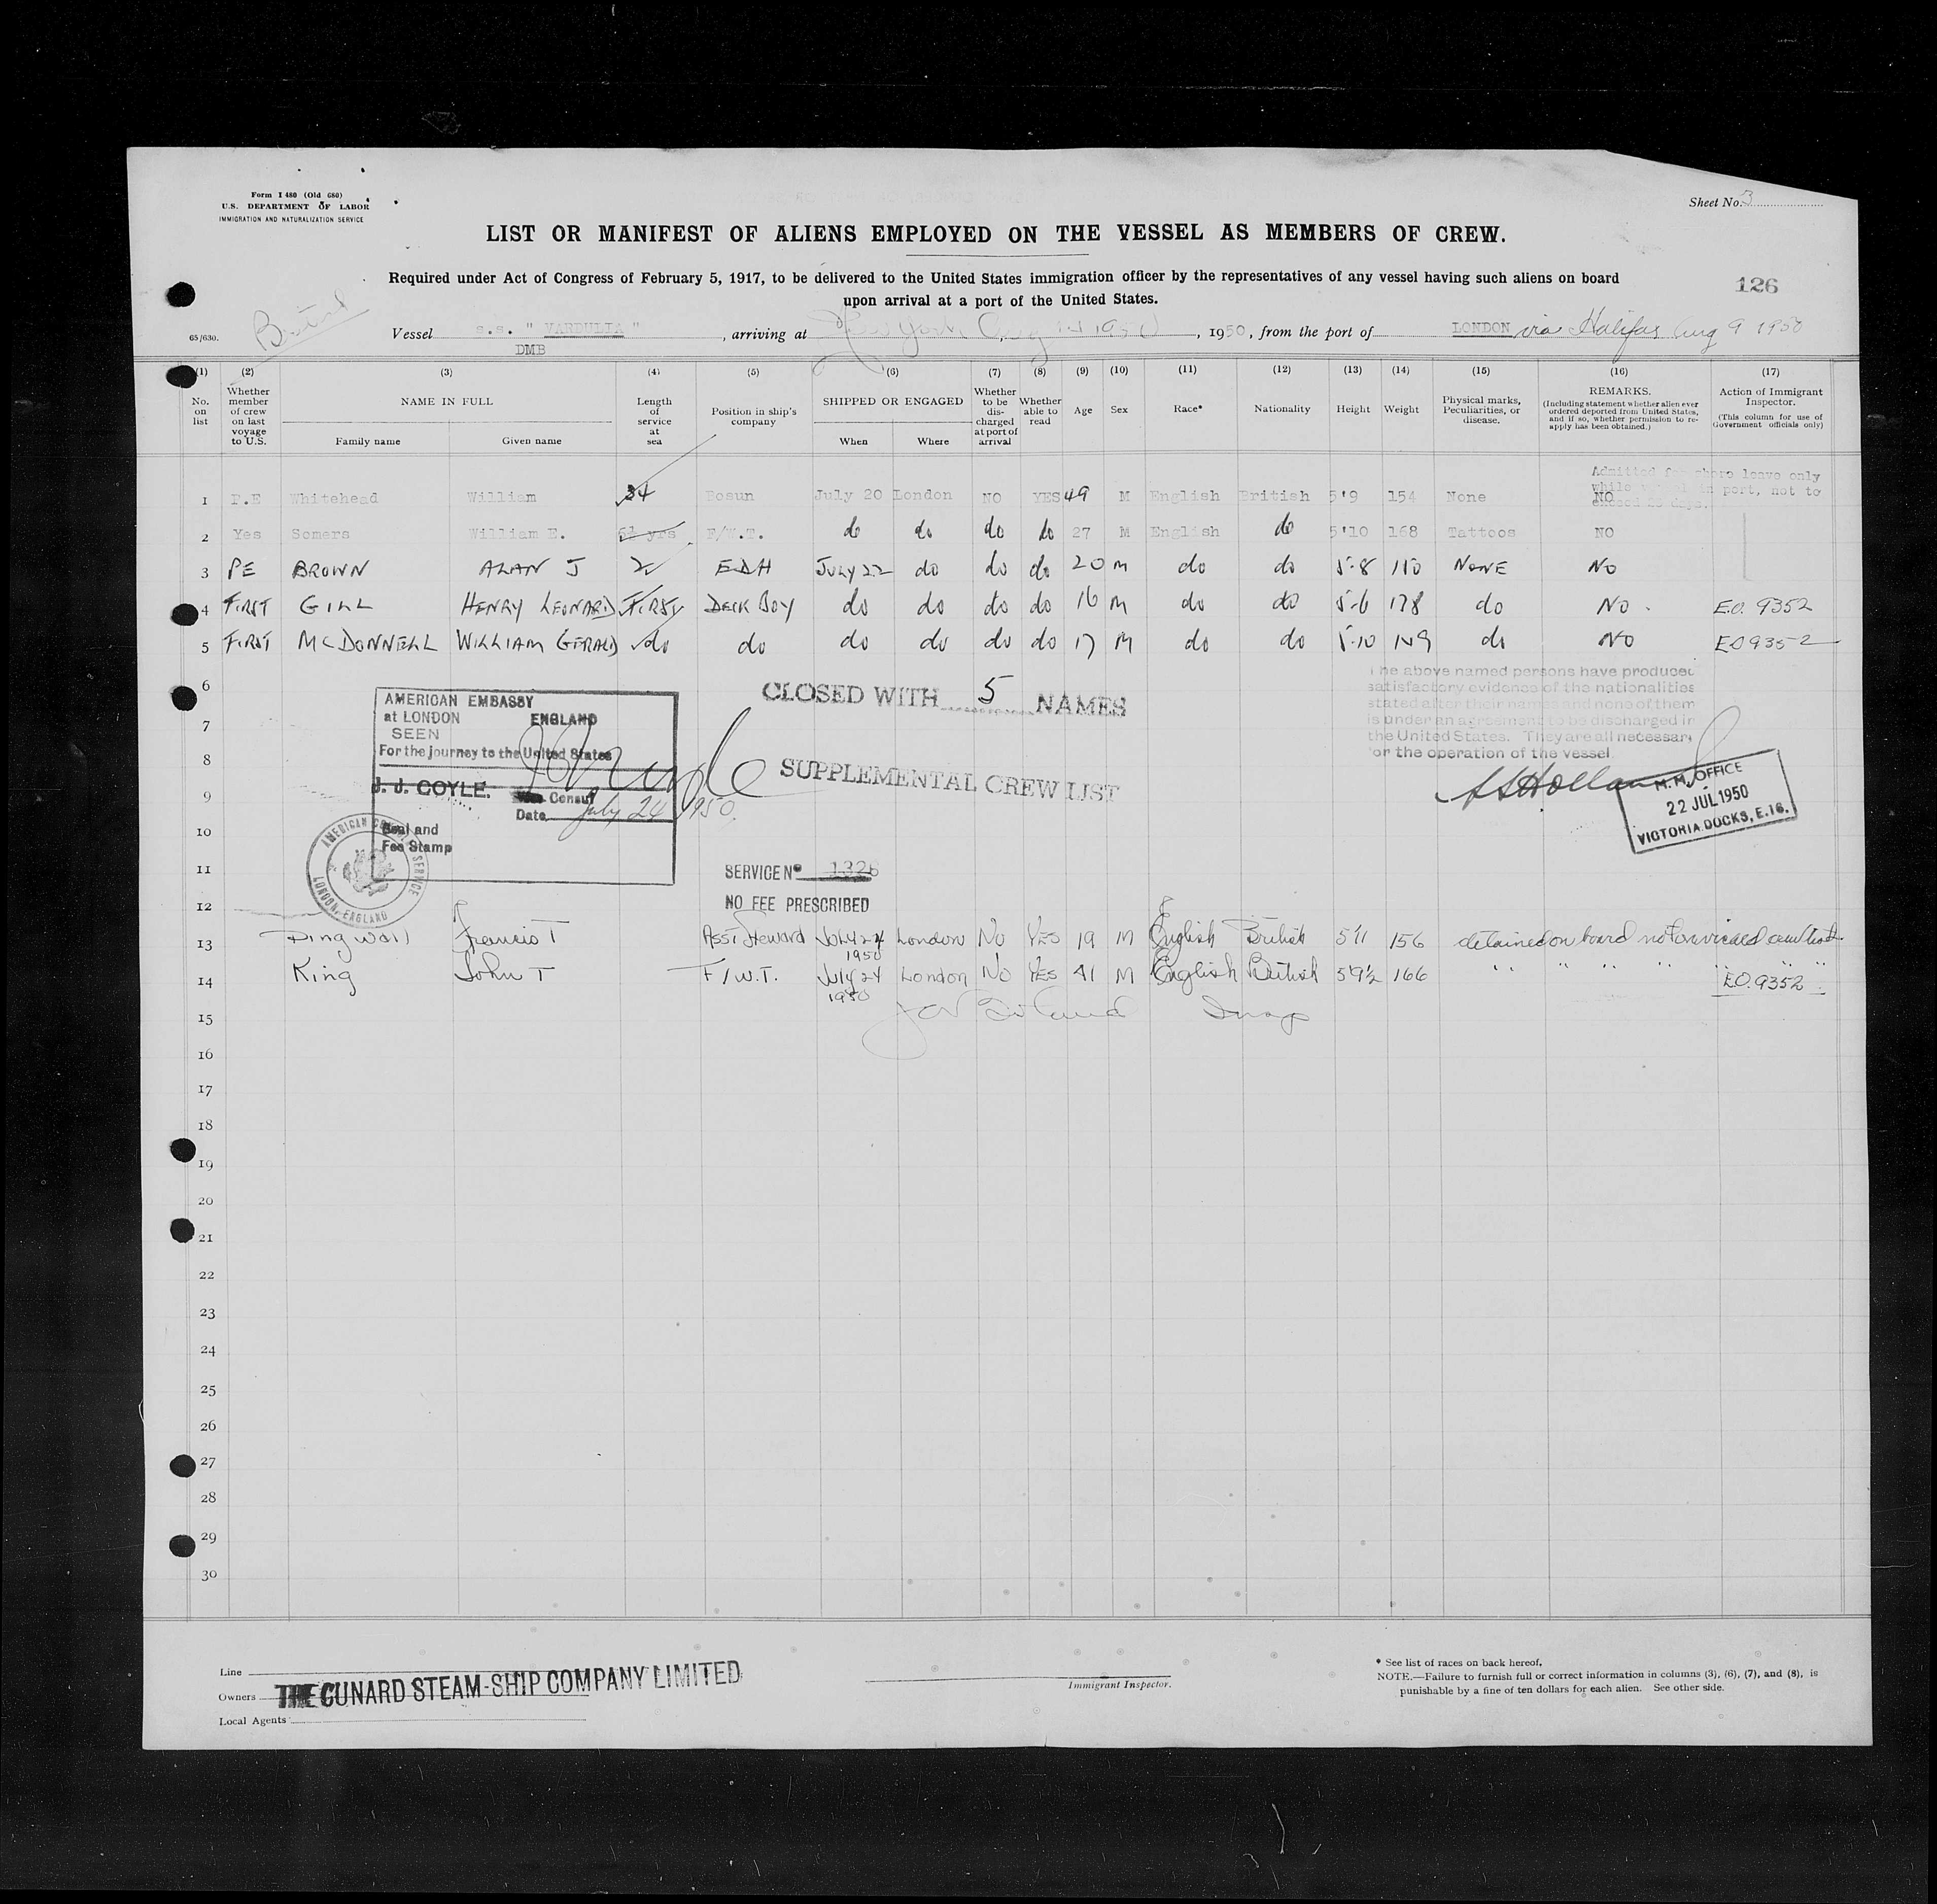 Form I 480 (Old 680)
U.S. DEPARTMENT OF LABOR
IMMIGRATION AND NATURALIZATION SERVICE
Sheet No. 3
LIST OR MANIFEST OF ALIENS EMPLOYED ON THE VESSEL AS MEMBERS OF CREW.
Required under Act of Congress of February 5, 1917, to be delivered to the United States immigration officer by the representatives of any vessel having such aliens on board
upon arrival at a port of the United States.
126
British
65/630.
Vessel s.s. " VARDULIA ", arriving at New York Aug 14 1950, 1950, from the port of LONDON via Halifax Aug 9 1950
DMB
(1) (2) (3) (4) (5) (6) (7) (8) (9) (10) (11) (12) (13) (14) (15) (16) (17)
No. on list
Whether member of crew on last voyage to U.S.
NAME IN FULL
Family name Given name
Length of service at sea
Position in ship's company
SHIPPED OR ENGAGED
When Where
Whether to be discharged at port of arrival
Whether able to read
Age
Sex
Race*
Nationality
Height
Weight
Physical marks, Peculiarities, or disease.
REMARKS.
(Including statement whether alien ever ordered deported from United States, and if so, whether permission to re-apply has been obtained.)
Action of Immigrant Inspector.
(This column for use of Government officials only)
Admitted for shore leave only
while vessel in port, not to
exceed 29 days.
1 P.E Whitehead William 34 Bosun July 20 London NO YES 49 M English British 5'9 154 None NO
2 Yes Somers William E. 6½ yrs F/W.T. do do do do 27 M English do 5'10 168 Tattoos NO
3 PE BROWN ALAN J 2 EDH JULY 22 do do do 20 M do do 5-8 110 NONE NO
4 FIRST GILL HENRY LEONARD FIRST DECK BOY do do do do 16 M do do 5-6 178 do NO. E.O. 9352
5 FIRST McDONNELL WILLIAM GERALD do do do do do do 17 M do do 5-10 149 do NO EO 9352
6
7
8
9
10
11
12
CLOSED WITH 5 NAMES
The above named persons have produced
satisfactory evidence of the nationalities
stated after their names and none of them
is under an agreement to be discharged in
the United States. They are all necessary
for the operation of the vessel
AMERICAN EMBASSY
at LONDON ENGLAND
SEEN
For the journey to the United States
J. J. COYLE. Consul
Date July 24 1950.
Seal and
Fee Stamp
AMERICAN CONSULAR SERVICE
LONDON, ENGLAND
SUPPLEMENTAL CREW LIST
M. M. OFFICE
22 JUL 1950
VICTORIA DOCKS, E.16.
SERVICE Nº 1326
NO FEE PRESCRIBED
13 Dingwall Francis T Asst Steward July 24 1950 London No YES 19 M English British 5'11 156 detained on board not on visaed crew list.
14 King John T F/W.T. July 24 1950 London No YES 41 M English British 5'9½ 166 " " " " " " " E.O. 9352
15
16
17
18
19
20
21
22
23
24
25
26
27
28
29
30
Line
Owners THE CUNARD STEAM-SHIP COMPANY LIMITED
Local Agents
Immigrant Inspector.
* See list of races on back hereof,
NOTE.—Failure to furnish full or correct information in columns (3), (6), (7), and (8), is
punishable by a fine of ten dollars for each alien. See other side.